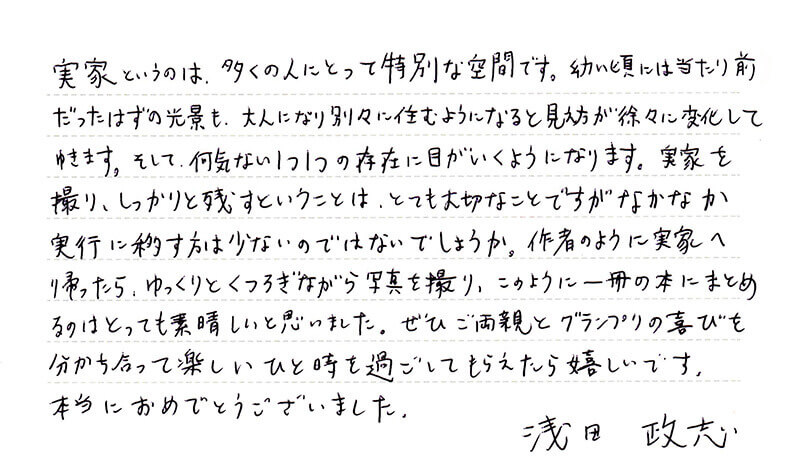 実家というのは、多くの人にとって特別な空間です。幼い頃には当たり前
だったはずの光景も、大人になり別々に住むようになると見え方が徐々に変化して
ゆきます。そして、何気ない1つ1つの存在に目がいくようになります。実家を
撮り、しっかりと残すということは、とても大切なことですがなかなか
実行に移す方は少ないのではないでしょうか。作者のように実家へ
帰ったら、ゆっくりとくつろぎながら写真を撮り、このように一冊の本にまとめ
るのはとっても素晴しいと思いました。ぜひご両親とグランプリの喜びを
分かち合って楽しいひと時を過ごしてもらえたら嬉しいです。
本当におめでとうございました。
浅田 政志